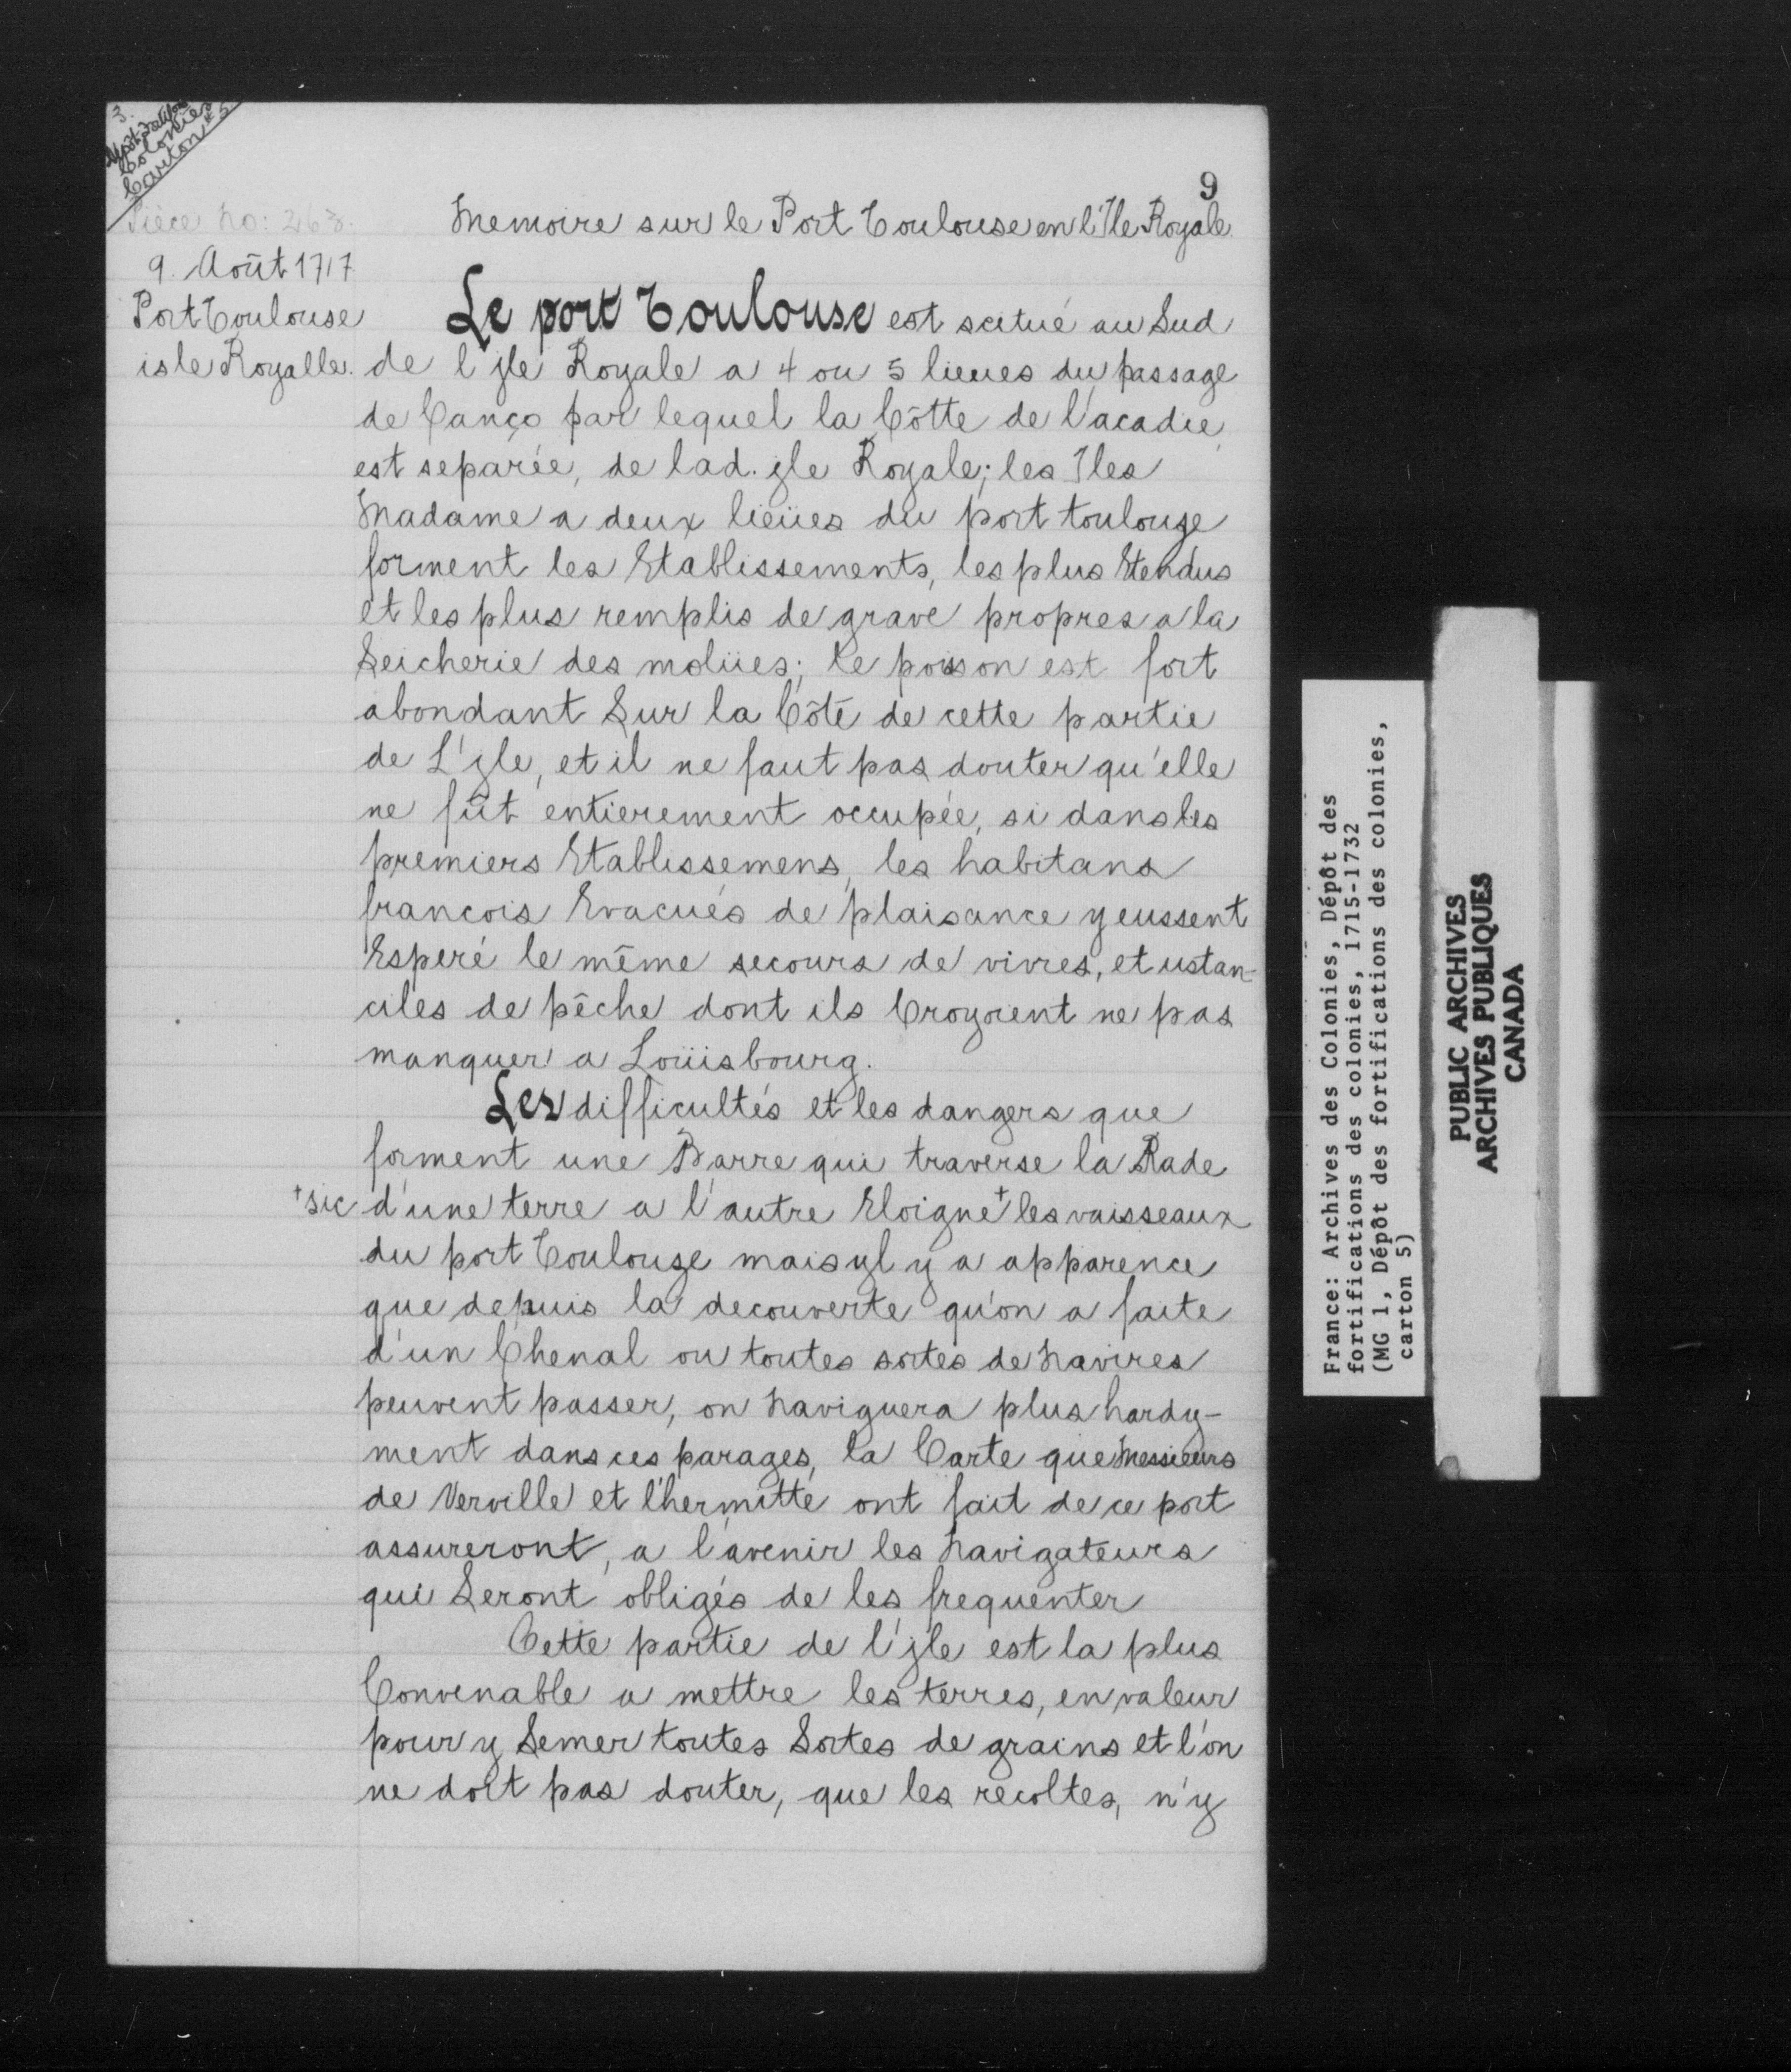 3.
Colonies
Carton n° 5
9
Pièce No: 263.
Memoire sur le Port Toulouse en l'Ile Royale.
9. Août 1717
Port Toulouse
isle Royalle.
Le port Toulouse est scitué au Sud
de l'jle Royale a 4 ou 5 lieues du passage
de Canço par lequel la Côtte de l'acadie
est separée, de lad. jle Royale; les Iles
Madame a deux lieües du port toulouze
forment les Etablissements, les plus Etendus
et les plus remplis de grave propres a la
Seicherie des molües; le poisson est fort
abondant Sur la Côte de cette partie
de L'jle, et il ne faut pas douter qu'elle
ne fût entierement occupée, si dans les
premiers Etablissemens, les habitans
francois Evacués de plaisance y eussent
Esperé le même secours de vivres, et ustan-
ciles de pêche dont ils Croyoient ne pas
manquer a Loüisbourg.
Les difficultés et les dangers que
forment une Barre qui traverse la Rade
†sic d'une terre a l'autre Eloigne† les vaisseaux
du port Toulouze mais yl y a apparence
que depuis la decouverte qu'on a faite
d'un Chenal ou toutes sortes de Navires
peuvent passer, on Naviguera plus hardy-
ment dans ces parages, la Carte que Messieurs
de Verville et l'hermitte ont fait de ce port
assureront, a l'avenir les Navigateurs
qui Seront obligés de les frequenter
Cette partie de l'jle est la plus
Convenable a mettre les terres, en valeur
pour y Semer toutes Sortes de grains et l'on
ne doit pas douter, que les recoltes, n'y
France: Archives des Colonies, Dépôt des
fortifications des colonies, 1715-1732
(MG 1, Dépôt des fortifications des colonies,
carton 5)
PUBLIC ARCHIVES
ARCHIVES PUBLIQUES
CANADA